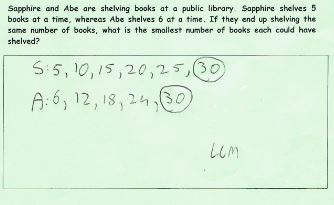 Sapphire and Abe are shelving books at a public library. Sapphire shelves 5
books at a time, whereas Abe shelves 6 at a time. If they end up shelving the
same number of books, what is the smallest number of books each could have
shelved?
S:5, 10, 15, 20, 25, 30
A:6, 12, 18, 24, 30
LCM